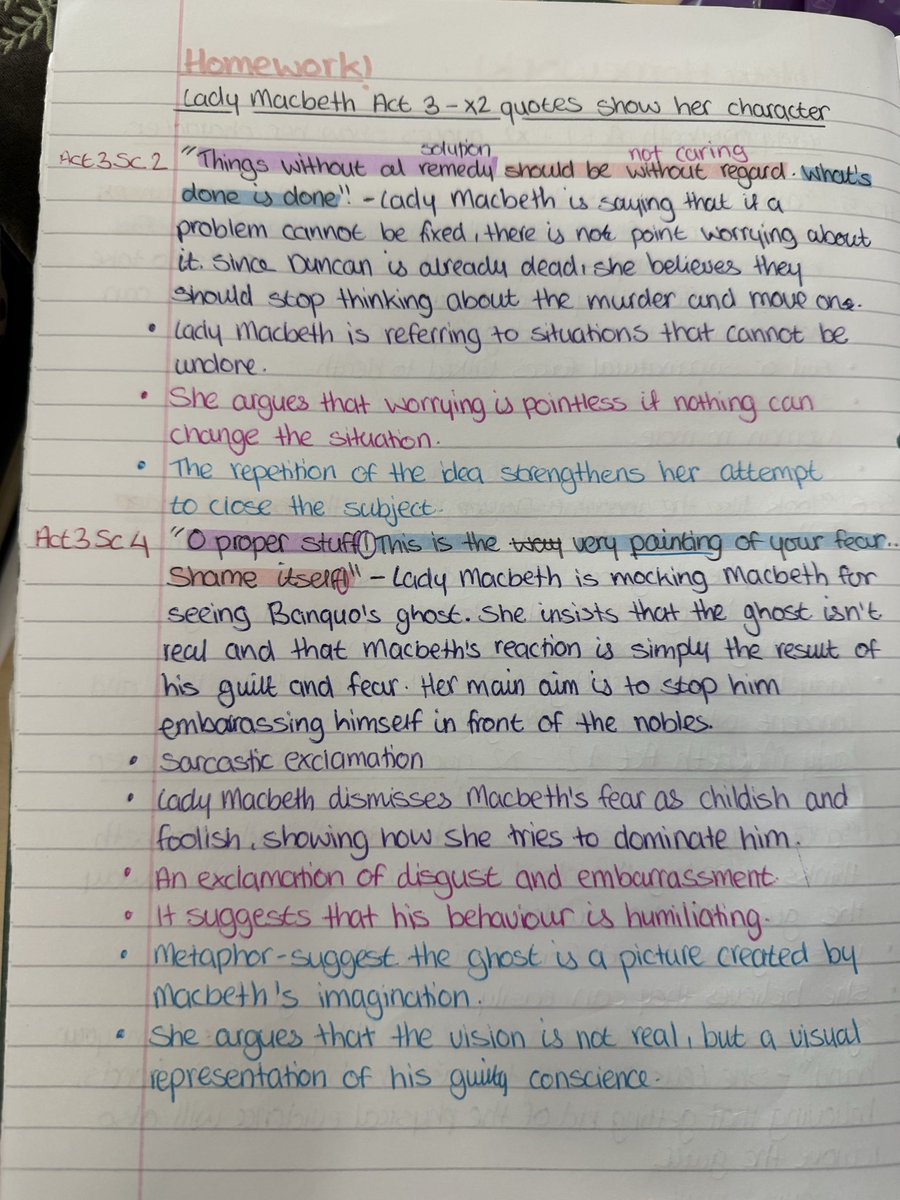 Homework!
Lady Macbeth Act 3 - x2 quotes show her character
solution not caring
Act 3 Sc. 2 "Things without al remedy should be without regard. What's
done is done". - Lady Macbeth is saying that if a
problem cannot be fixed, there is not point worrying about
it. Since Duncan is already dead, she believes they
should stop thinking about the murder and move on.
• Lady Macbeth is referring to situations that cannot be
undone.
• She argues that worrying is pointless if nothing can
change the situation.
• The repetition of the idea strengthens her attempt
to close the subject.
Act 3 Sc 4 "O proper stuff! This is the very painting of your fear..
Shame itself!" - Lady Macbeth is mocking Macbeth for
seeing Banquo's ghost. She insists that the ghost isn't
real and that Macbeth's reaction is simply the result of
his guilt and fear. Her main aim is to stop him
embarassing himself in front of the nobles.
• Sarcastic exclamation
• Lady Macbeth dismisses Macbeth's fear as childish and
foolish, showing how she tries to dominate him.
• An exclamation of disgust and embarrassment.
• It suggests that his behaviour is humiliating.
• Metaphor - suggest the ghost is a picture created by
Macbeth's imagination.
• She argues that the vision is not real, but a visual
representation of his guilty conscience.